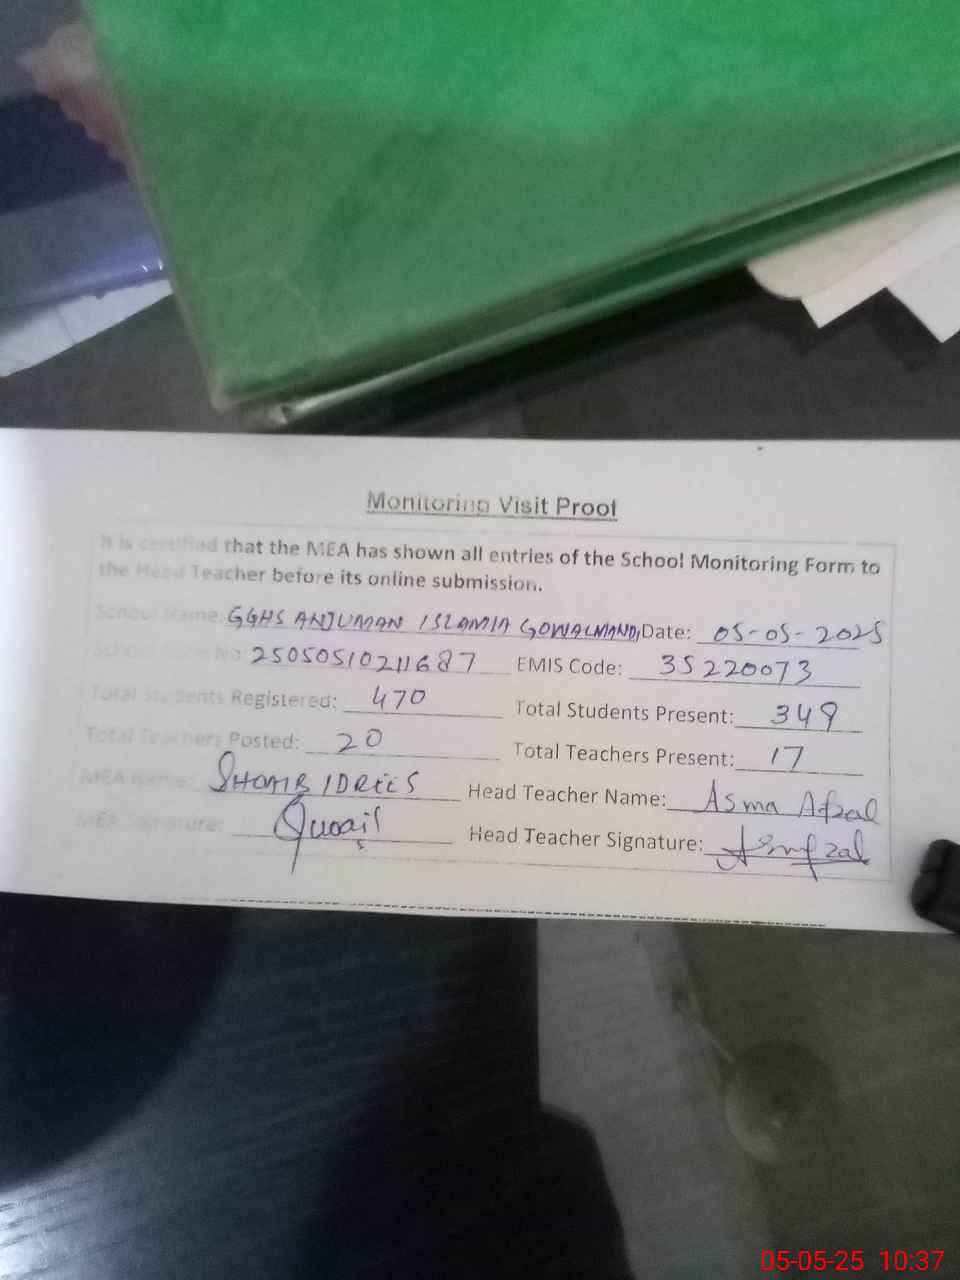 Monitoring Visit Proof
It is certified that the MEA has shown all entries of the School Monitoring Form to
the Head Teacher before its online submission.
School Name: GGHS ANJUMAN ISLAMIA GOWALMANDI Date: 05-05-2025
School No: 25050510211687 EMIS Code: 35220073
Total Students Registered: 470 Total Students Present: 349
Total Teachers Posted: 20 Total Teachers Present: 17
MEA Name: SHOAIB IDREES Head Teacher Name: Asma Afzal
MEA Signature: Head Teacher Signature:
05-05-25 10:37